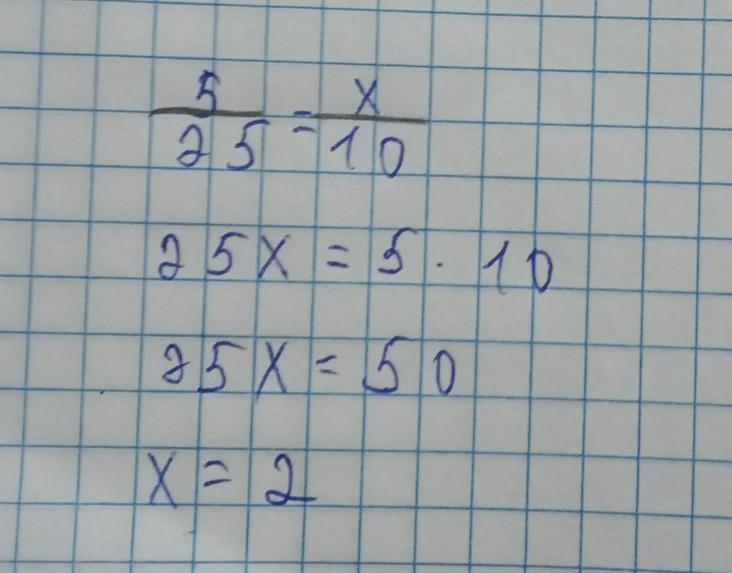 5/25 = x/10
25x = 5 · 10
25x = 50
x = 2